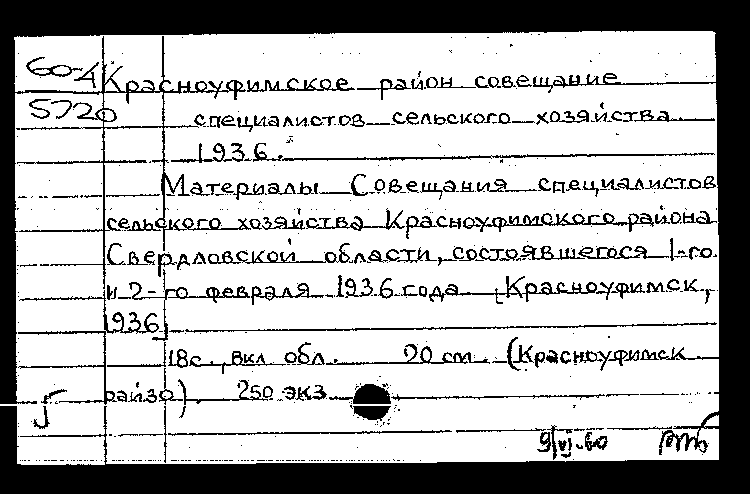 60-4 Красноуфимское район совещание
5720 специалистов сельского хозяйства.
1936.
Материалы Совещания специалистов
сельского хозяйства Красноуфимского района
Свердловской области, состоявшегося 1-го
и 2-го февраля 1936 года [Красноуфимск,
1936]
18с., вкл обл. 20 см. (Красноуфимск.
райзо). 250 экз
9/vj-60